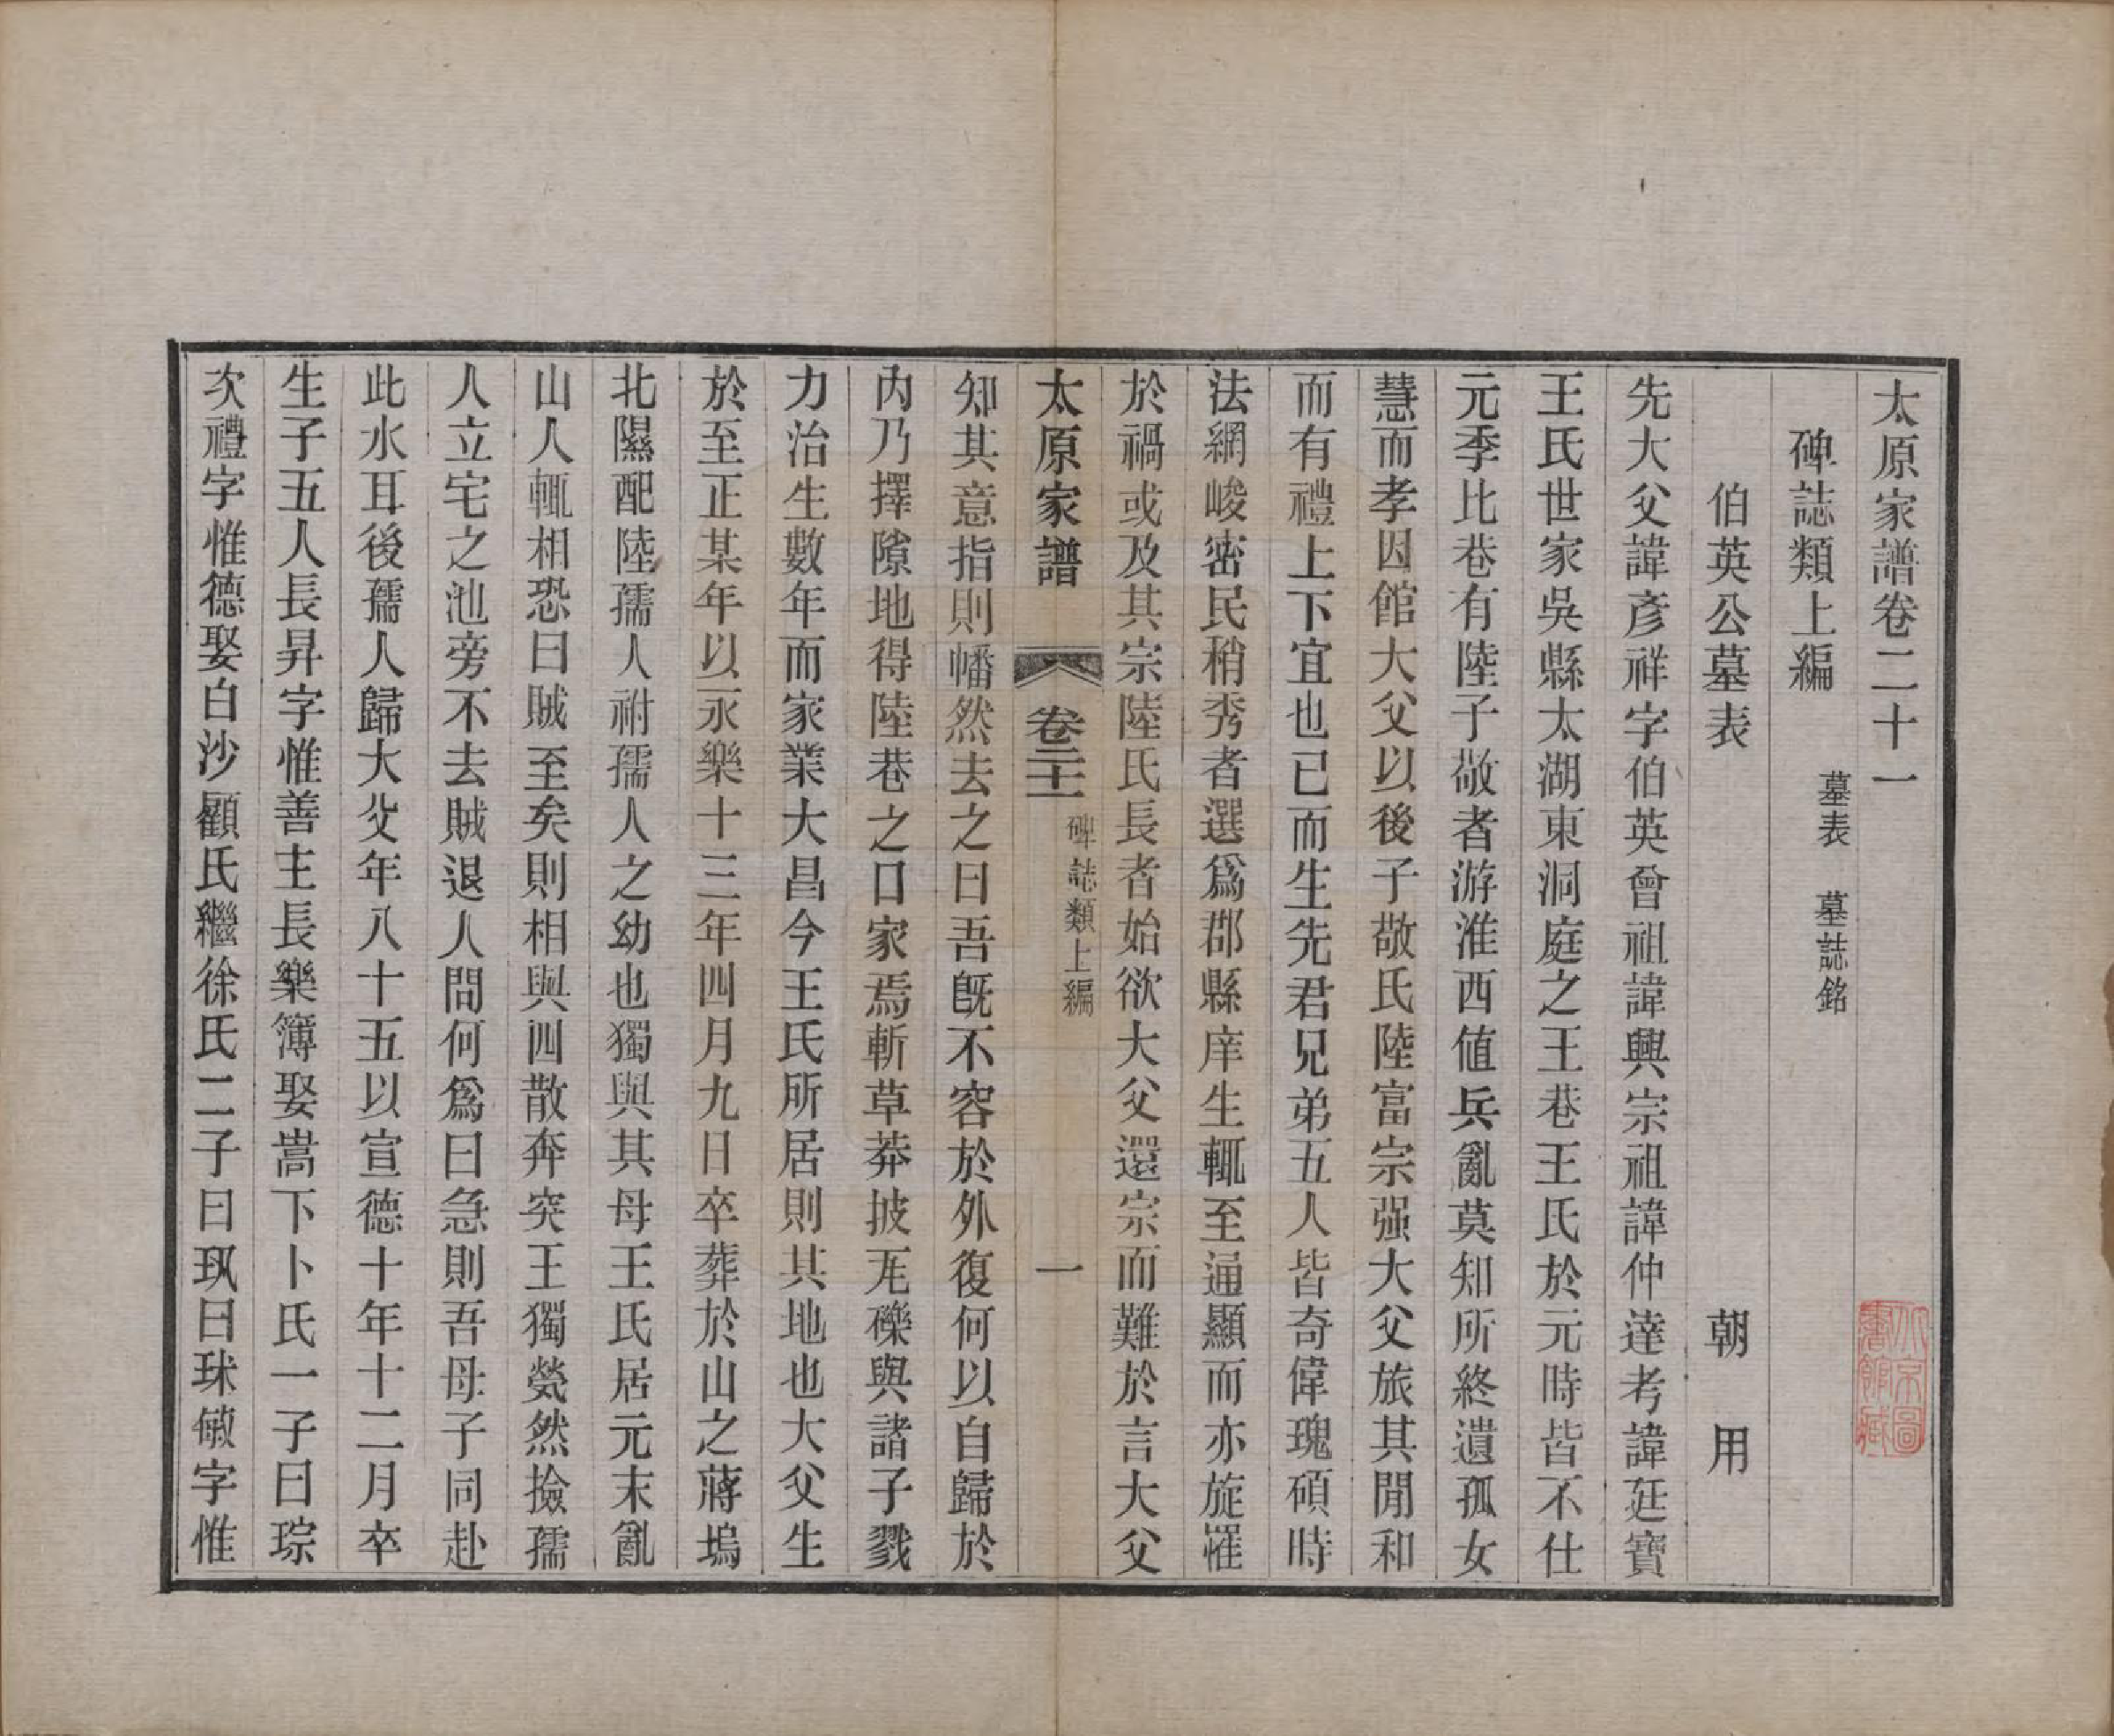 太原家譜卷二十一
碑誌類上編　墓表　墓誌銘
伯英公墓表　朝用
先大父諱彥祥字伯英曾祖諱興宗祖諱仲達考諱廷寶
王氏世家吳縣太湖東洞庭之王巷王氏於元時皆不仕
元季比巷有陸子敬者游淮西值兵亂莫知所終遺孤女
慧而孝因館大父以後子敬氏陸富宗强大父旅其閒和
而有禮上下宜也已而生先君兄弟五人皆奇偉瑰碩時
法網峻密民稍秀者選爲郡縣庠生輒至通顯而亦旋罹
於禍或及其宗陸氏長者始欲大父還宗而難於言大父
太原家譜　卷二十一　碑誌類上編　一
知其意指則幡然去之曰吾旣不容於外復何以自歸於
內乃擇隙地得陸巷之口家焉斬草莽披瓦礫與諸子戮
力治生數年而家業大昌今王氏所居則其地也大父生
於至正某年以永樂十三年四月九日卒葬於山之蔣塢
北隰配陸孺人祔孺人之幼也獨與其母王氏居元末亂
山人輒相恐曰賊至矣則相與四散奔突王獨煢然撿孺
人立宅之池旁不去賊退人問何爲曰急則吾母子同赴
此水耳後孺人歸大父年八十五以宣德十年十二月卒
生子五人長昇字惟善主長樂簿娶嵩下卜氏一子曰琮
次禮字惟德娶白沙顧氏繼徐氏二子曰珮曰球敏字惟
北京圖書館藏